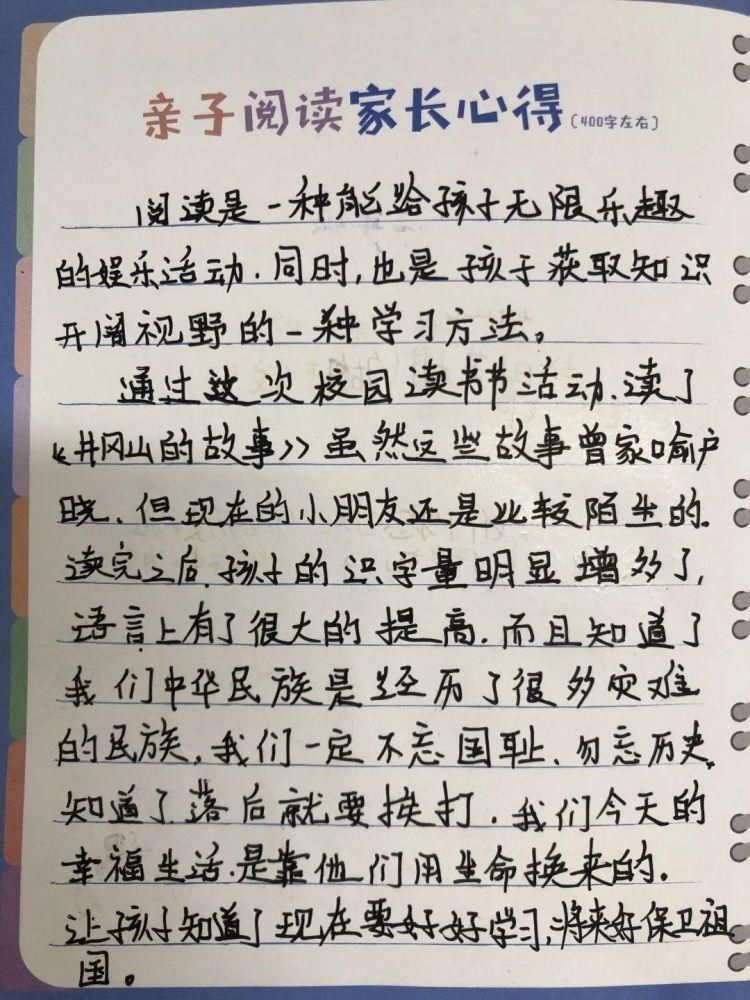 亲子阅读家长心得（400字左右）
阅读是一种能给孩子无限乐趣
的娱乐活动.同时,也是孩子获取知识
开阔视野的一种学习方法。
通过这次校园读书节活动.读了
《井冈山的故事》虽然这些故事曾家喻户
晓、但现在的小朋友还是比较陌生的.
读完之后.孩子的识字量明显增多了,
语言上有了很大的提高.而且知道了
我们中华民族是经历了很多灾难
的民族,我们一定不忘国耻、勿忘历史,
知道了落后就要挨打.我们今天的
幸福生活.是靠他们用生命换来的.
让孩子知道了现在要好好学习,将来好保卫祖
国。